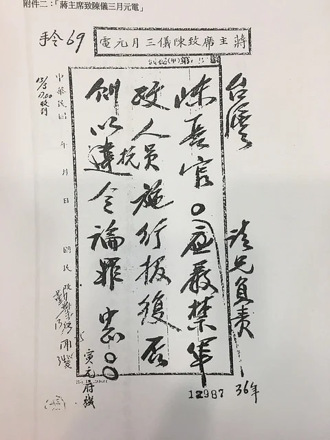 附件二:「蔣主席致陳儀三月元電」
手令 69
蔣主席致陳儀三月元電
台灣
請兄負責
36年
陳長官。應嚴禁軍
政人員施行報復否
則以違抗令論罪 中
寅元府機
中華民國 年 月 日
12987